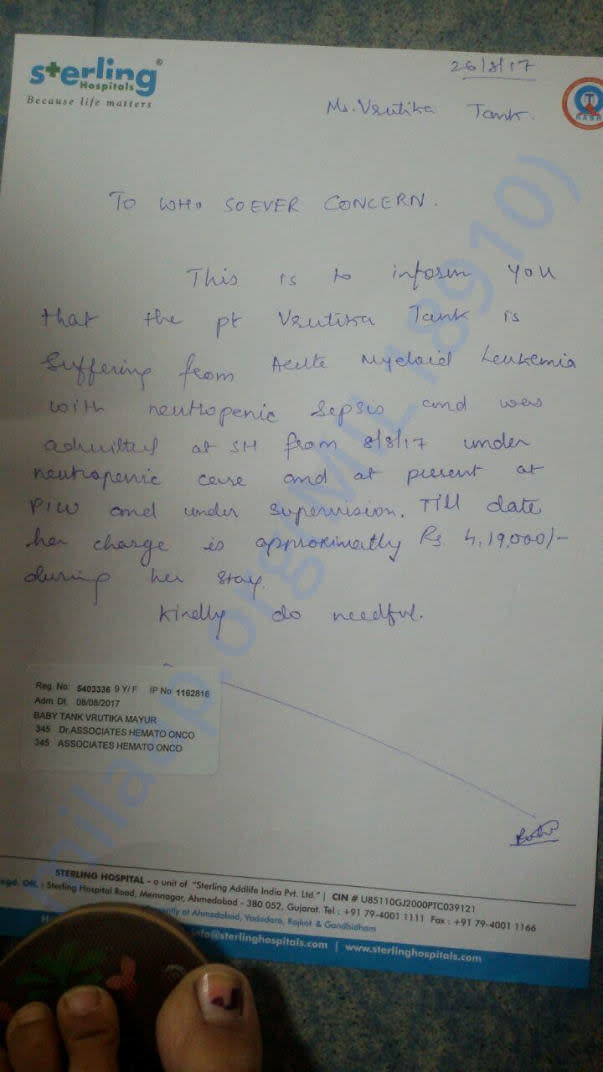 sterling®
Hospitals
Because life matters
26/8/17
Ms. Vrutika Tank.
TO WHO SOEVER CONCERN.
This is to inform you
that the pt Vrutika Tank is
Suffering from Acute Myeloid Leukemia
with neutropenic Sepsis and was
admitted at SH from 8/8/17 under
neutropenic care and at present at
PICU and under supervision. Till date
her charge is approximatly Rs. 4,19,000/-
during her stay.
Kindly do needful.
milaap.org(MIL18910)
Reg. No: 5403336 9 Y/F IP No 1162816
Adm Dt. 08/08/2017
BABY TANK VRUTIKA MAYUR
345 Dr.ASSOCIATES HEMATO ONCO
345 ASSOCIATES HEMATO ONCO
STERLING HOSPITAL - a unit of "Sterling Addlife India Pvt. Ltd." | CIN # U85110GJ2000PTC039121
Regd. Off. : Sterling Hospital Road, Memnagar, Ahmedabad - 380 052, Gujarat. Tel : +91 79-4001 1111 Fax : +91 79-4001 1166
at Ahmedabad, Vadodara, Rajkot & Gandhidham
info@sterlinghospitals.com | www.sterlinghospitals.com